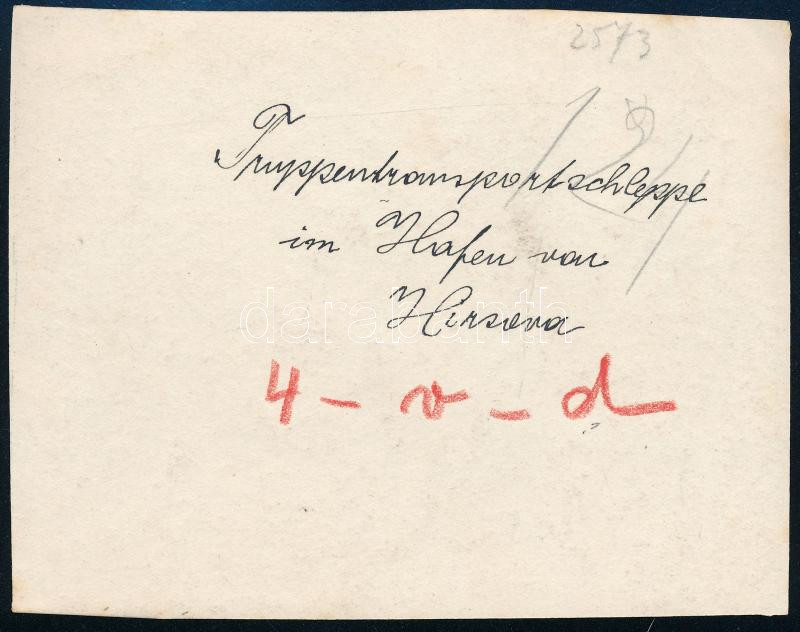 2573
Truppentransportschleppe
im Hafen von
Hirsova
darabanth
4 - v - d